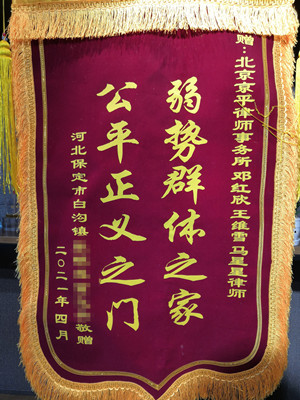 赠：北京京平律师事务所 邓红欣 王维雪 马星星律师
弱势群体之家
公平正义之门
河北保定市白沟镇 敬赠
二〇二一年四月